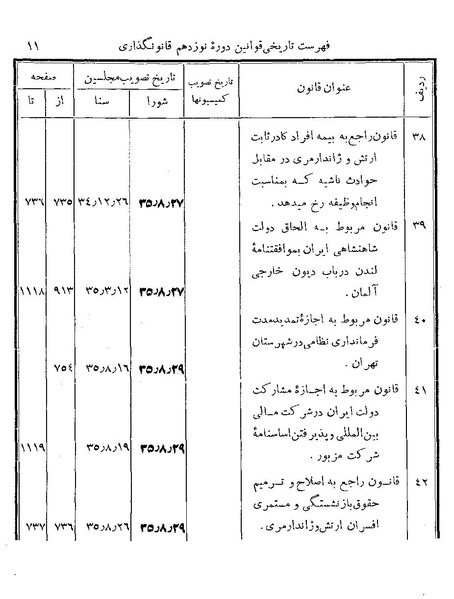 فهرست تاریخی قوانین دورهٔ نوزدهم قانونگذاری ۱۱
ردیف عنوان قانون تاریخ تصویب کمیسیونها تاریخ تصویب مجلسین صفحه
شورا سنا از تا
۳۸ قانون راجع به بیمه افراد کادر ثابت
ارتش و ژاندارمری در مقابل
حوادث ناشیه که بمناسبت
انجام وظیفه رخ میدهد. ۳۵٫۸٫۲۷ ۳۴٫۱۲٫۲۶ ۷۳۵ ۷۳۶
۳۹ قانون مربوط به الحاق دولت
شاهنشاهی ایران بموافقتنامهٔ
لندن در باب دیون خارجی
آلمان. ۳۵٫۸٫۲۷ ۳۵٫۳٫۱۲ ۹۱۳ ۱۱۱۸
۴۰ قانون مربوط به اجازهٔ تمدید مدت
فرمانداری نظامی در شهرستان
تهران. ۳۵٫۸٫۲۹ ۳۵٫۸٫۱۶ ۷۵۴
۴۱ قانون مربوط به اجازهٔ مشارکت
دولت ایران در شرکت مالی
بین‌المللی و پذیرفتن اساسنامهٔ
شرکت مزبور. ۳۵٫۸٫۲۹ ۳۵٫۸٫۱۹ ۱۱۱۹
۴۲ قانون راجع به اصلاح و ترمیم
حقوق بازنشستگی و مستمری
افسران ارتش و ژاندارمری. ۳۵٫۸٫۲۹ ۳۵٫۸٫۲۶ ۷۳۶ ۷۳۷